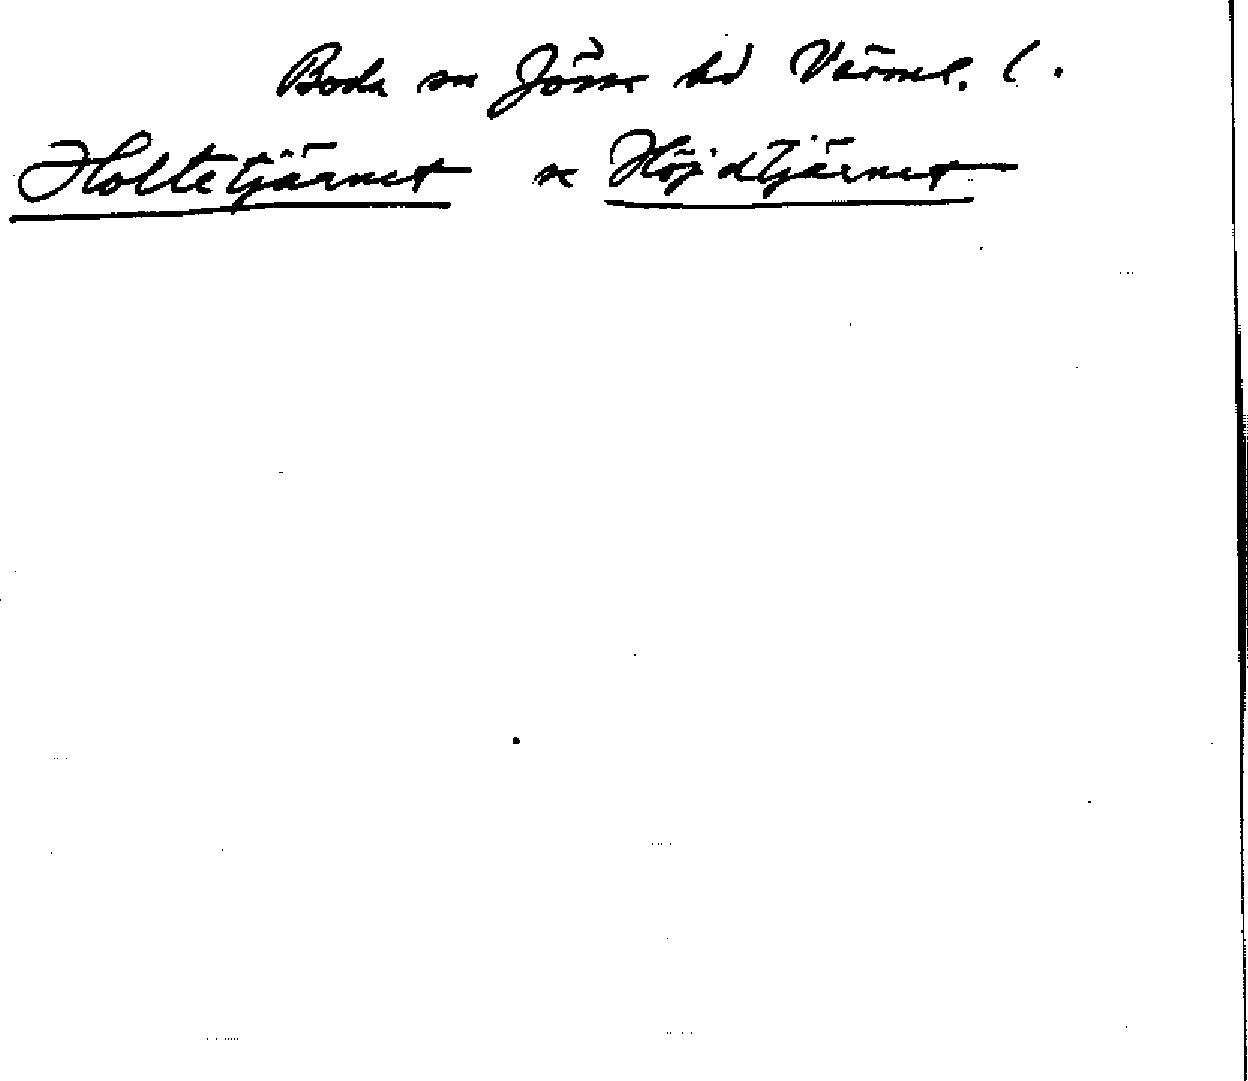 Boda sn Jösse hd Värml. l.
Holtetjärnet se Höjdtjärnet